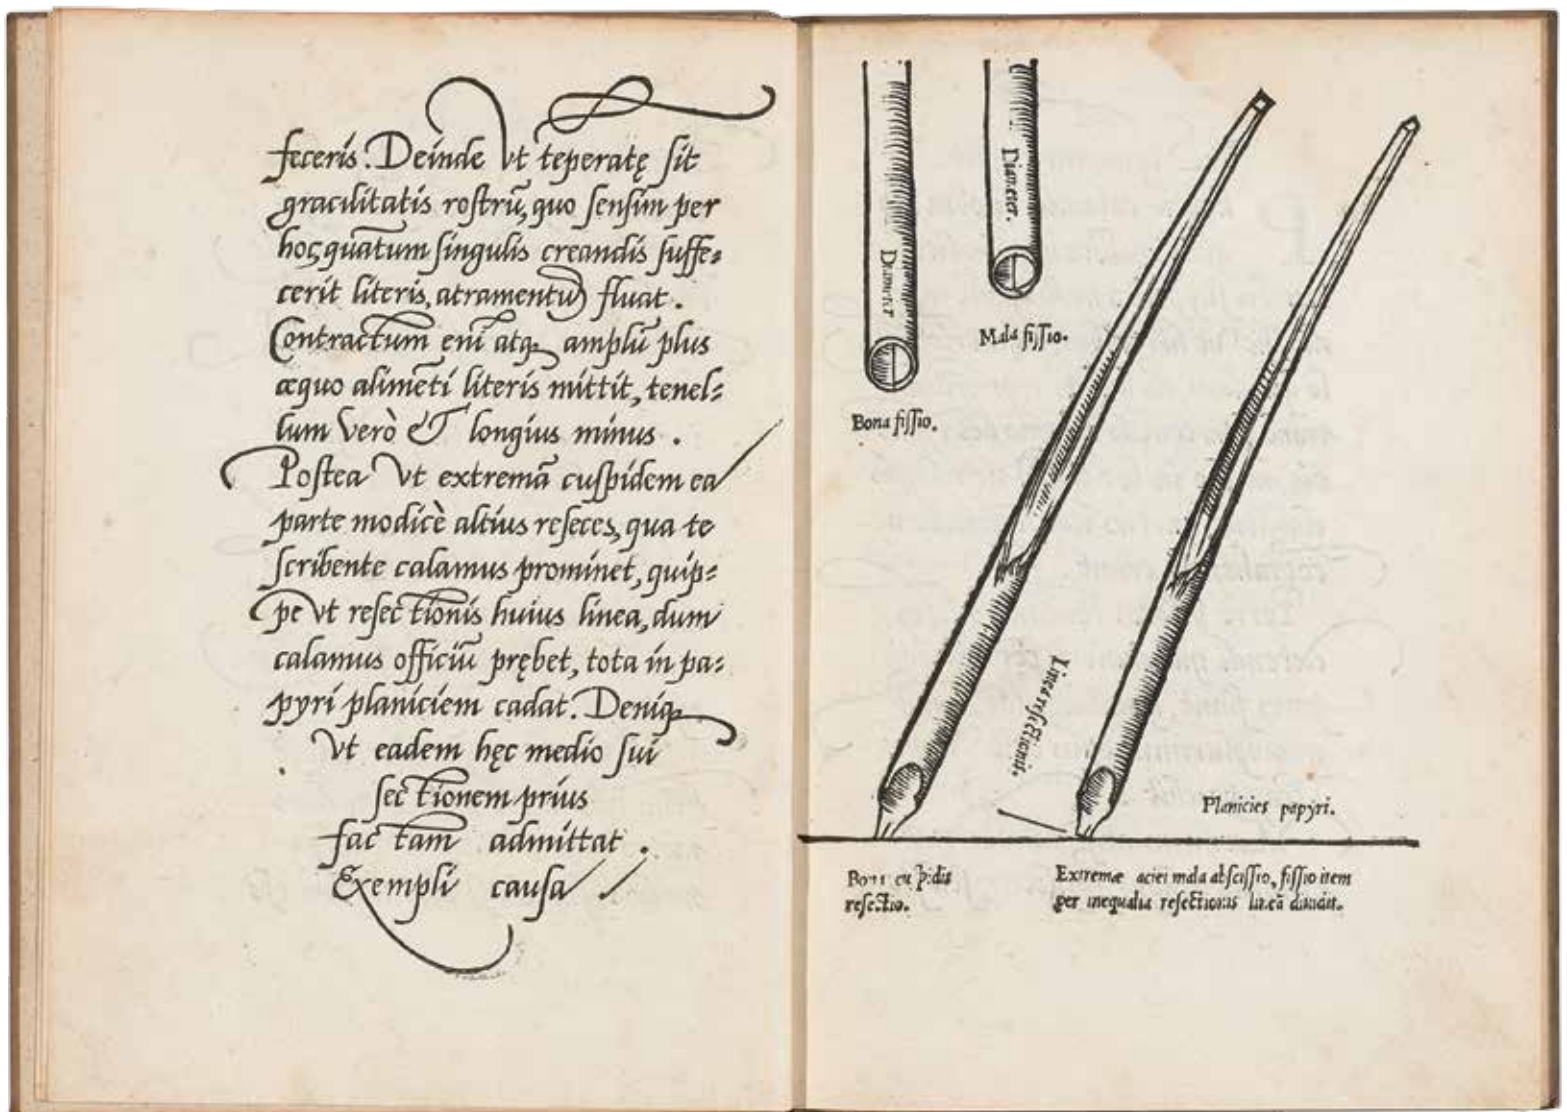 feceris. Deinde vt tēperatę sit
gracilitatis rostrū, quo sensim per
hoc, quātum singulis creandis suffe=
cerit literis, atramentū fluat.
Contractum enī atq. amplū plus
æquo alimēti literis mittit, tenel=
lum verò & longius minus.
Postea vt extremā cuspidem ea
parte modicè altius reseces, qua te
scribente calamus prominet, quip=
pe vt resectionis huius linea, dum
calamus officiū prębet, tota in pa=
pyri planiciem cadat. Deniq.
vt eadem hęc medio sui
sectionem prius
factam admittat.
Exempli causa
Diameter
Diameter.
Mala fissio.
Bona fissio.
Linea resectionis.
Planicies papyri.
Bona cuspidis
resectio.
Extremæ aciei mala abscissio, fissio item
per inequalia resectionis lineā diuidit.